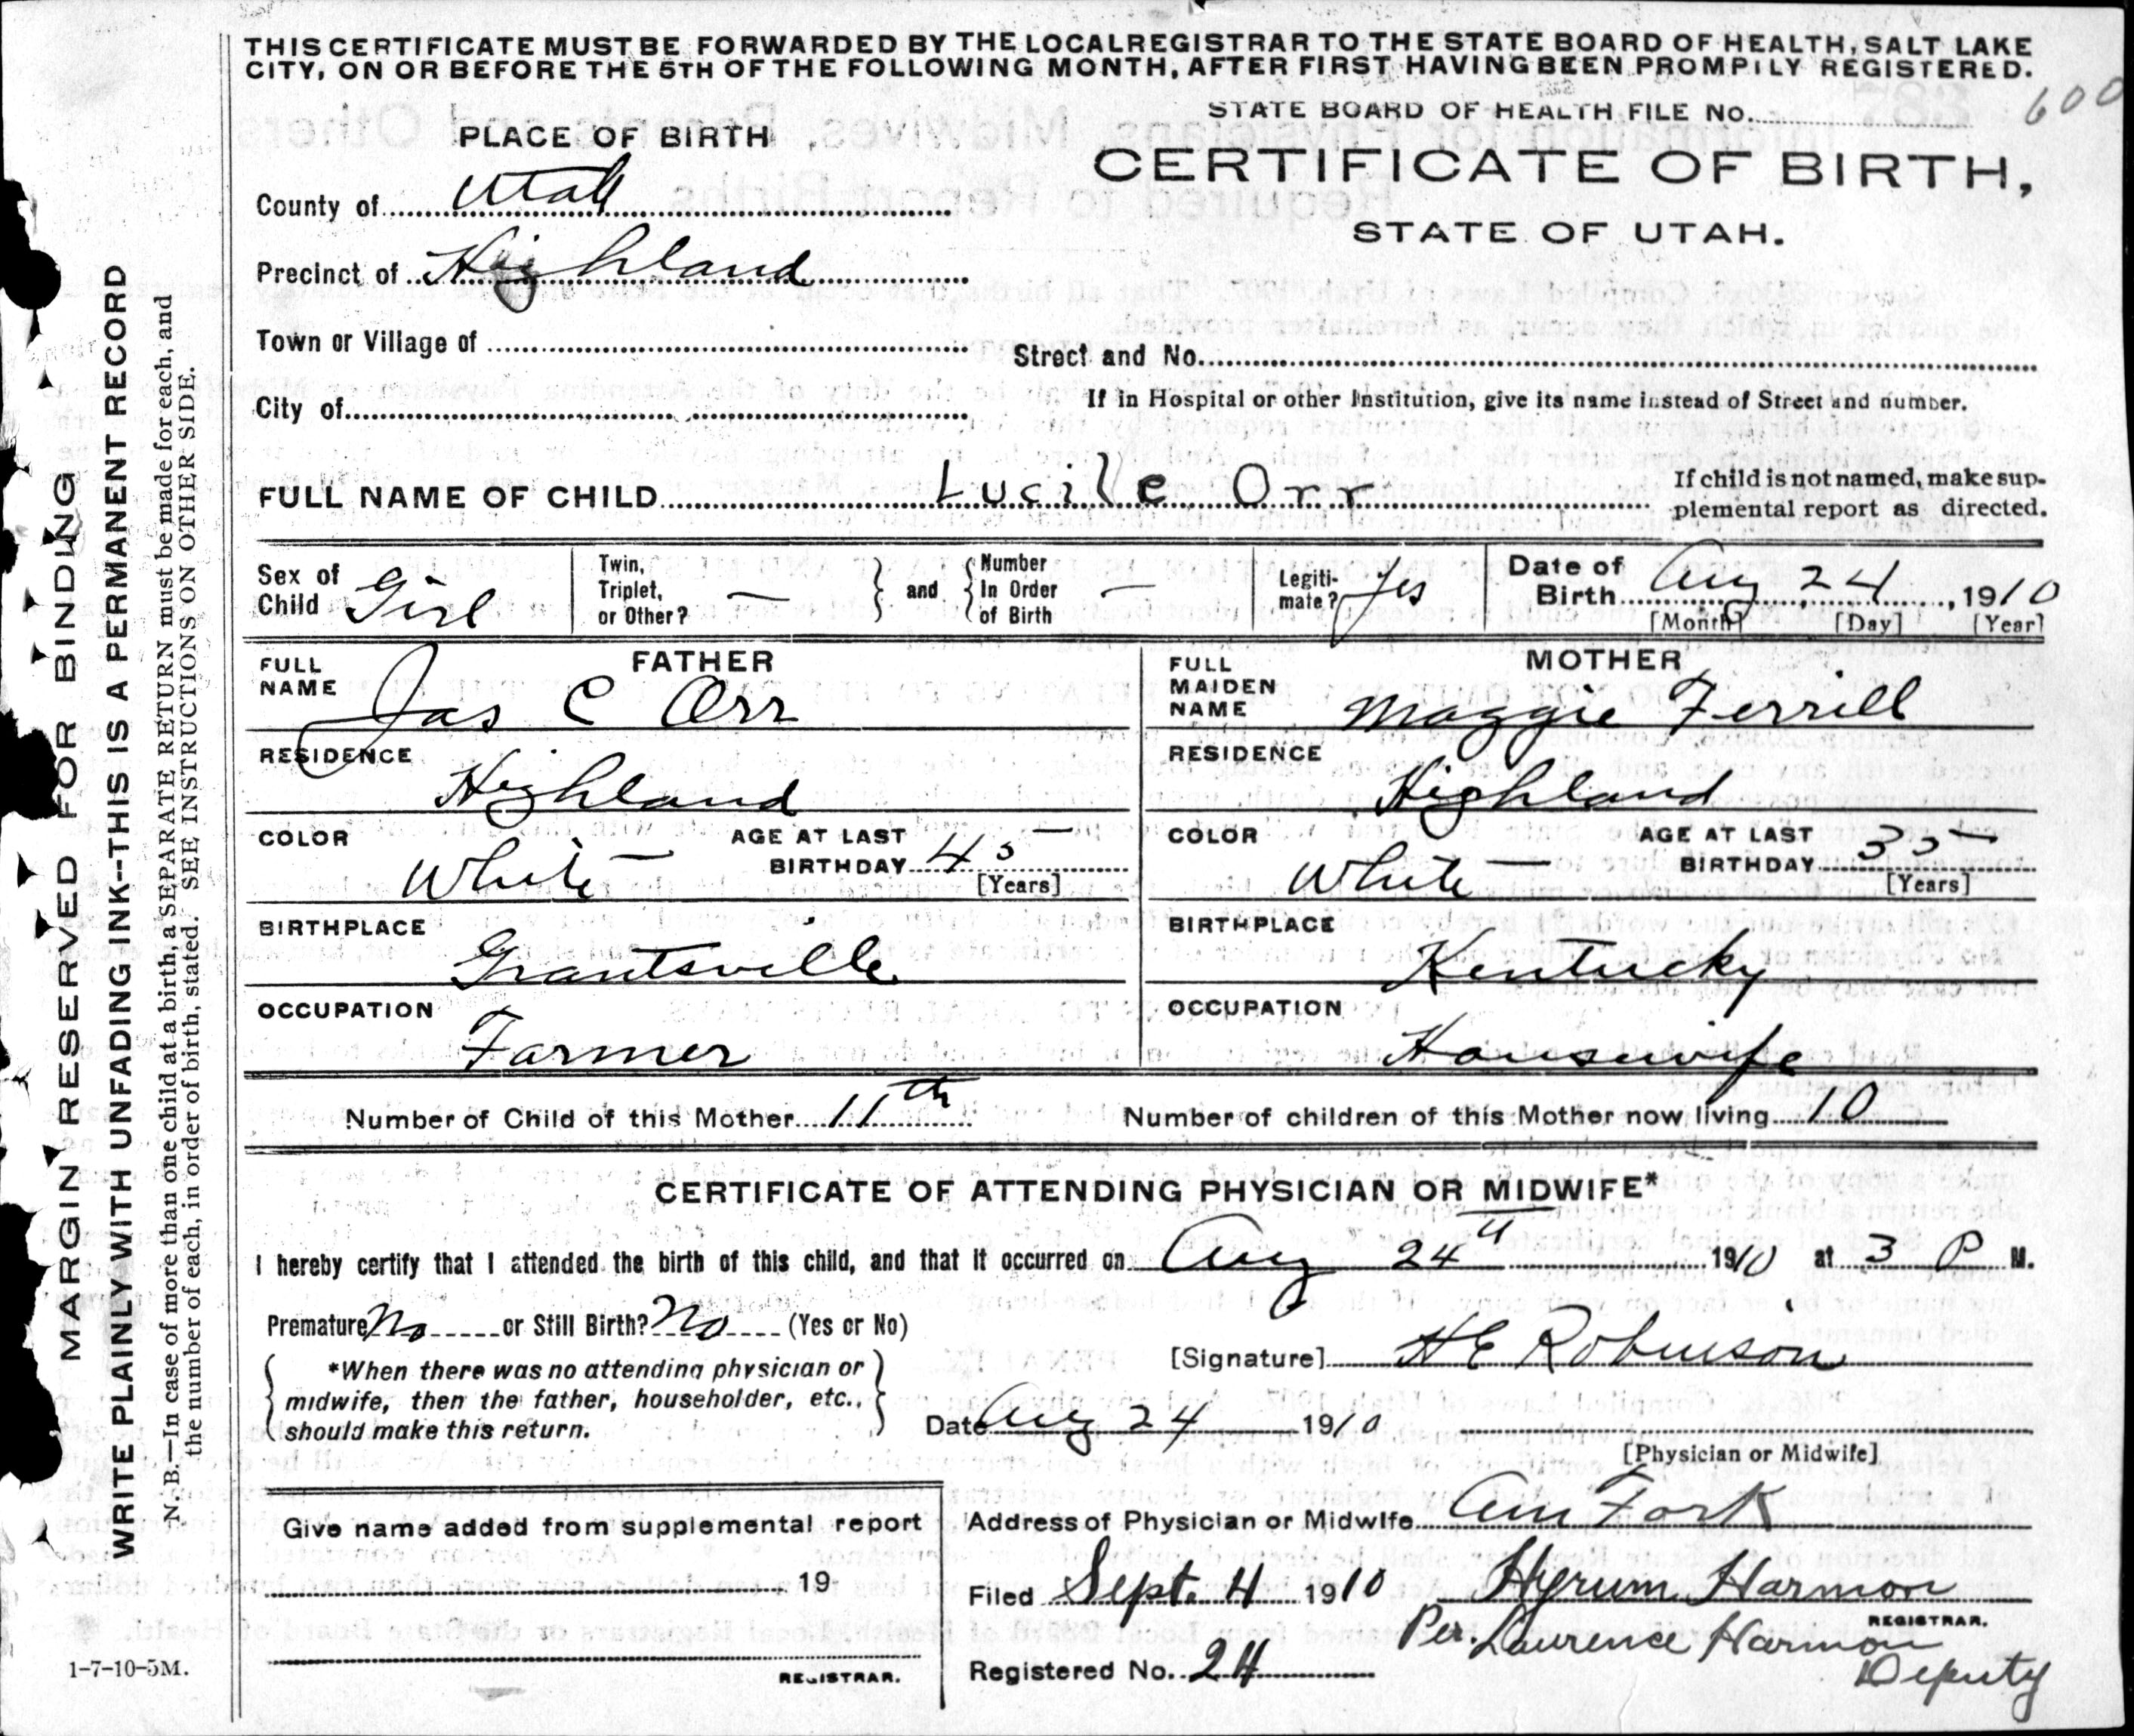 THIS CERTIFICATE MUST BE FORWARDED BY THE LOCAL REGISTRAR TO THE STATE BOARD OF HEALTH, SALT LAKE
CITY, ON OR BEFORE THE 5TH OF THE FOLLOWING MONTH, AFTER FIRST HAVING BEEN PROMPILY REGISTERED.
STATE BOARD OF HEALTH FILE No. 600
PLACE OF BIRTH
CERTIFICATE OF BIRTH,
County of Utah
STATE OF UTAH.
Precinct of Highland
Town or Village of
Street and No.
City of
If in Hospital or other Institution, give its name instead of Street and number.
FULL NAME OF CHILD Lucile Orr
If child is not named, make sup-
plemental report as directed.
Sex of Child Girl
Twin, Triplet, or Other? —
and
Number In Order of Birth —
Legiti-mate? Yes
Date of Birth Aug 24, 1910
[Month] [Day] [Year]
FATHER
FULL NAME Jas C Orr
RESIDENCE
Highland
COLOR White
AGE AT LAST BIRTHDAY 45
[Years]
BIRTHPLACE
Grantsville
OCCUPATION
Farmer
MOTHER
FULL MAIDEN NAME Maggie Ferrill
RESIDENCE
Highland
COLOR White
AGE AT LAST BIRTHDAY 35
[Years]
BIRTHPLACE
Kentucky
OCCUPATION
Housewife
Number of Child of this Mother 11th
Number of children of this Mother now living 10
CERTIFICATE OF ATTENDING PHYSICIAN OR MIDWIFE*
I hereby certify that I attended the birth of this child, and that it occurred on Aug 24" 1910 at 3 P M.
Premature No or Still Birth? No (Yes or No)
*When there was no attending physician or
midwife, then the father, householder, etc.,
should make this return.
[Signature] HE Robinson
Date Aug 24 1910
[Physician or Midwife]
Give name added from supplemental report
19
REGISTRAR.
Address of Physician or Midwife Am Fork
Filed Sept. 4 1910 Hyrum Harmon
REGISTRAR.
Per. Laurence Harmon
Deputy
Registered No. 24
1-7-10-5M.
MARGIN RESERVED FOR BINDING
WRITE PLAINLY WITH UNFADING INK--THIS IS A PERMANENT RECORD
N. B.—In case of more than one child at a birth, a SEPARATE RETURN must be made for each, and
the number of each, in order of birth, stated. SEE INSTRUCTIONS ON OTHER SIDE.